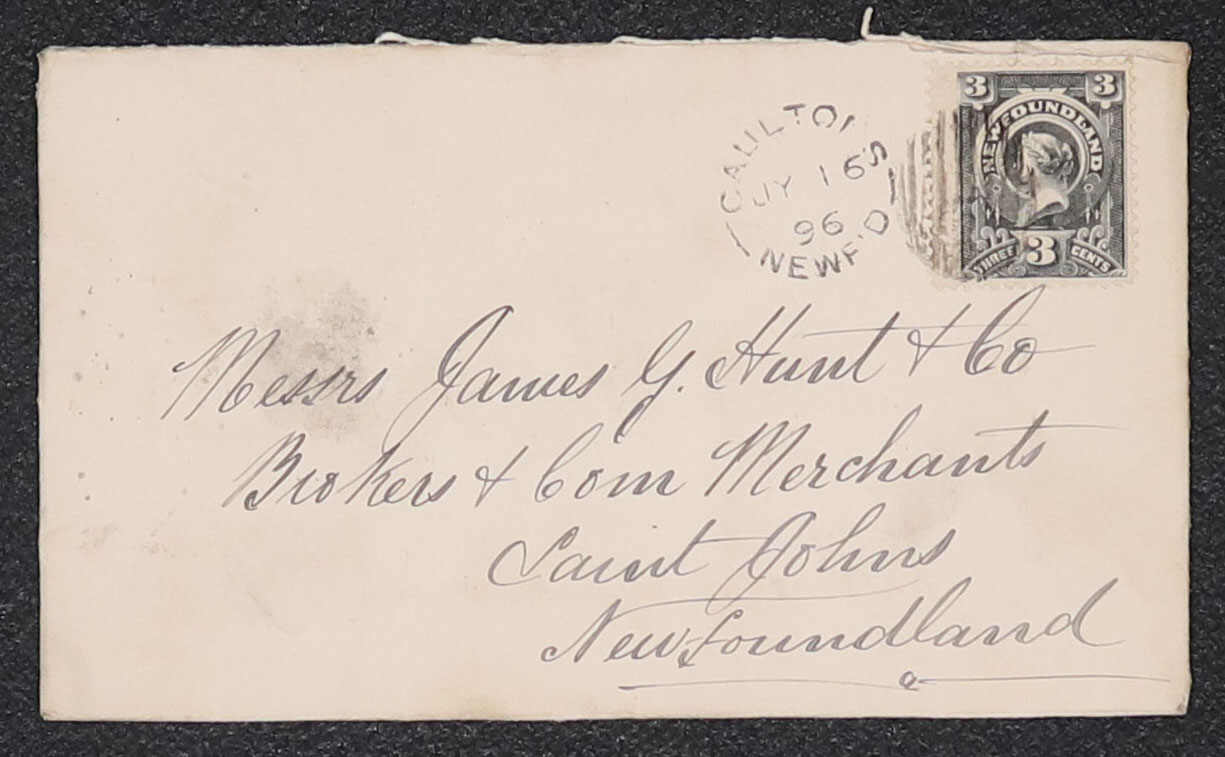 CAULTOIS
JY 16
96
NEWF'D
3 3
NEWFOUNDLAND
THREE 3 CENTS
Messrs James G. Hunt & Co
Brokers & Com Merchants
Saint Johns
Newfoundland